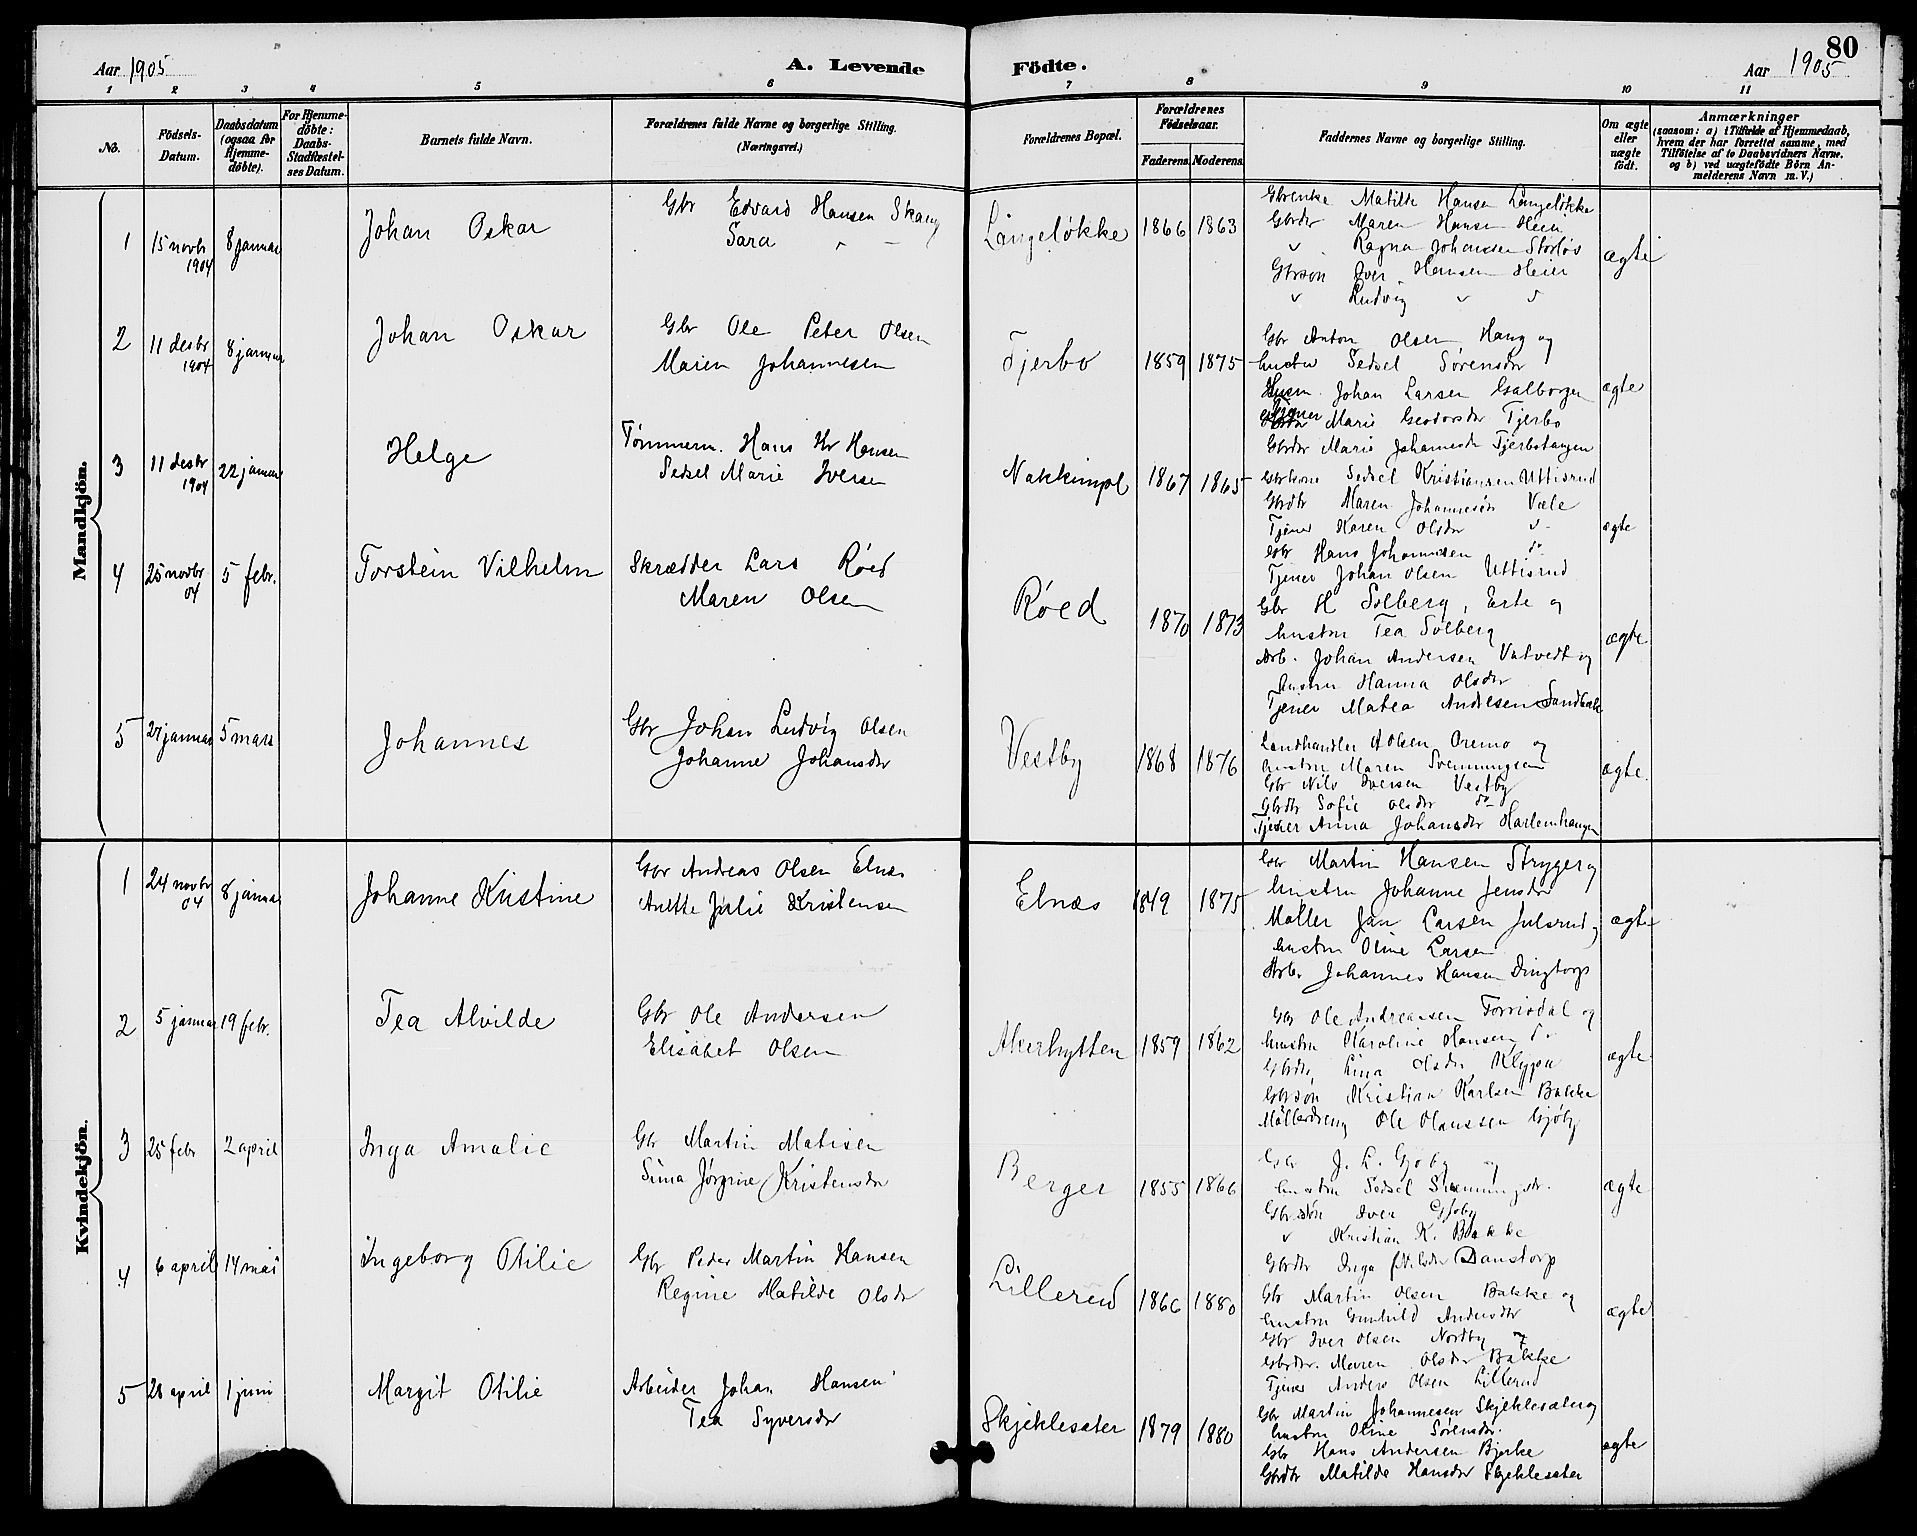 80
Aar 1905
A. Levende Födte.
Aar 1905
1 2 3 4 5 6 7 8 9 10 11
No.
Födsels-
Datum.
Daabsdatum
(ogsaa for
Hjemme-
döbte).
For Hjemme-
döbte:
Daabs-
Stadfæstel-
ses Datum.
Barnets fulde Navn.
Forældrenes fulde Navne og borgerlige Stilling.
(Næringsvei.)
Forældrenes Bopæl.
Forældrenes
Födselsaar.
Faderens. Moderens.
Faddernes Navne og borgerlige Stilling.
Om ægte
eller
uægte
födt.
Anmærkninger
(saasom: a) i Tilfælde af Hjemmedaab,
hvem der har forrettet samme, med
Tilföielse af to Daabsvidners Navne.
og b) ved uægtefödte Börn An-
melderens Navn m. V.)
Mandkjön.
1 15 novbr 1904 8 januar
Johan Oskar
Gbr Edvard Hansen Skaug
Sara " "
Langeløkke 1866 1863
Gbrenke Matilde Hansen Langeløkke
Gbrdtr Maren Hansen Heia
" Ragna Johansen Storløs
Gbrsøn Iver Hansen Heier
" Ludvig " "
ægte
2 11 desbr 1904 8 januar
Johan Oskar
Gbr Ole Peter Olsen
Maren Johannesen
Tjerbo 1859 1875
Gbr Anton Olsen Haug og
hustru Sedsel Sørensdr
Husm. Johan Larsen Galborgen
Tjener Marie Geodorsdr Tjerbo
Gbrdtr Marie Johannesdr Tjerbotangen
ægte
3 11 desbr 1904 22 januar
Helge
Tømmerm. Hans Kr Hansen
Sedsel Marie Iversen
Nakkimpel 1867 1865
Gbrkone Sedsel Kristiansen Uttisrud
Gbrdtr Maren Johannesen Væle
Tjener Karen Olsdr "
Gbr Hans Johannesen do
Tjener Johan Olsen Uttisrud
ægte
4 25 novbr 04 5 febr.
Torstein Vilhelm
Skrædder Lars Røed
Maren Olsen
Røed 1870 1873
Gbr H Solberg, Erte og
hustru Tea Solberg
Arb. Johan Andersen Vatvedt og
hustru Hanna Olsdr
Tjener Matea Andresen Sandbæk
ægte
5 27 januar 5 mars
Johannes
Gbr Johan Ludvig Olsen
Johanne Johansdr
Vestby 1868 1876
Landhandler A Olsen Oremo og
hustru Maren Svenningsen
Gbr Nils Iversen Vestby
Gbrdtr Sofie Olsdr do
Tjener Anna Johansdr Harlemhaugen
ægte.
Kvindekjön.
1 24 novbr 04 8 januar
Johanne Kristine
Gbr Andreas Olsen Elnæs
Anette Julie Kristensen
Elnæs 1849 1875
Gbr Martin Hansen Stryger og
hustru Johanne Jensdr
Møller Jan Larsen Julsrud og
hustru Oline Larsen
Arbr Johannes Hansen Dingtorp
ægte
2 5 januar 19 febr.
Tea Alvilde
Gbr Ole Andersen
Elisabet Olsen
Akerhytten 1859 1862
Gbr Ole Andreassen Torrisdal og
hustru Karoline Hansen do
Gbrdtr Lina Olsdr Klyppa
Gbrsøn Kristian Karlsen Bakke
Møllerdreng Ole Olaussen Gjøby
ægte
3 25 febr 2 april
Inga Amalie
Gbr Martin Matisen
Sina Jørgine Kristensdr
Berger 1855 1866
Gbr J. L. Gjøby og
hustru Sedsel Svenningsdr.
Gbrsøn Iver Gjøby
" Kristian K. Bakke
Gbrdtr Inga Danstorp
ægte
4 6 april 14 mai
Ingeborg Otilie
Gbr Peder Martin Hansen
Regine Matilde Olsdr
Lillerud 1866 1880
Gbr Martin Olsen Bakke og
hustru Gunhild Andersdtr
Gbr Iver Olsen Nordby og
Gbrdtr. Maren Olsdr Bakke
Tjener Anders Olsen Lillerud
ægte
5 28 april 1 juni
Margit Otilie
Arbeider Johan Hansen
Tea Syversdr
Skjeklesæter 1879 1880
Gbr Martin Johannesen Skjeklesæter og
hustru Oline Sørensdr.
Gbr Hans Andersen Bjerke
Gbrdtr Matilde Hansdr Skjeklesæter
ægte